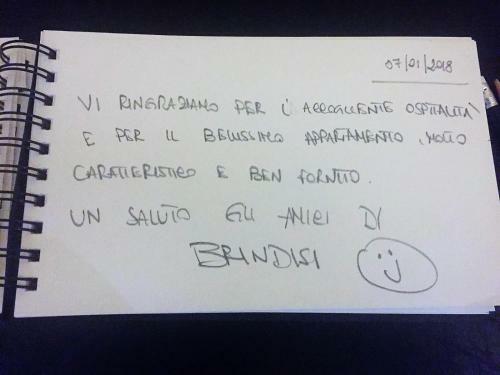 07/01/2018
VI RINGRAZIAMO PER L'ACCOGLIENTE OSPITALITÀ
E PER IL BELLISSIMO APPARTAMENTO, MOLTO
CARATTERISTICO E BEN FORNITO.
UN SALUTO GLI AMICI DI
BRINDISI